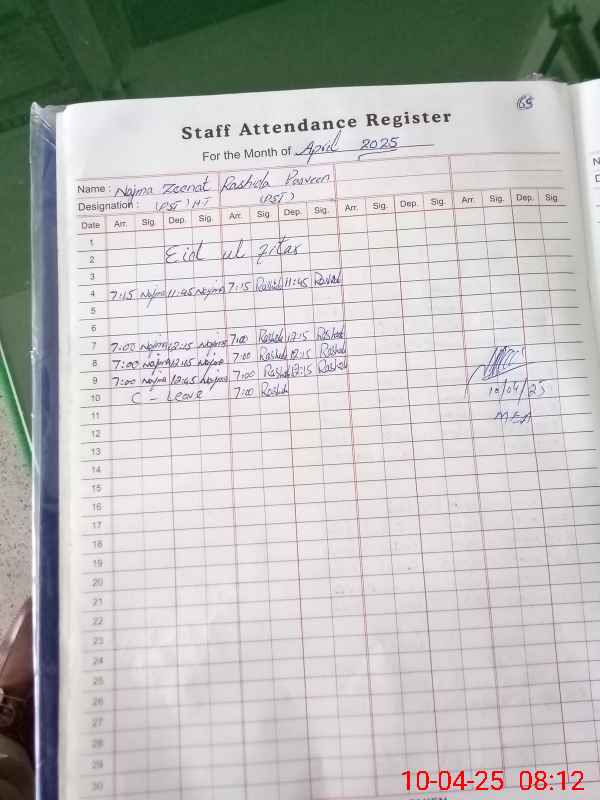 69
Staff Attendance Register
For the Month of April 2025
Name : Najma Zeenat Rashida Parveen
Designation : (PST) HT (PST)
Date Arr. Sig. Dep. Sig. Arr. Sig. Dep. Sig. Arr. Sig. Dep. Sig. Arr. Sig. Dep. Sig.
1
2 Eid ul fitar
3
4 7:15 Najma 11:45 Najma 7:15 Rashid 11:45 Rashid
5
6
7 7:00 Najma 12:15 Najma 7:00 Rashid 12:15 Rashid
8 7:00 Najma 12:15 Najma 7:00 Rashid 12:15 Rashid
9 7:00 Najma 12:45 Najma 7:00 Rashid 12:15 Rashid
10 C - Leave 7:00 Rashid
10/04/25
11
MEA
12
13
14
15
16
17
18
19
20
21
22
23
24
25
26
27
28
29
30
10-04-25 08:12